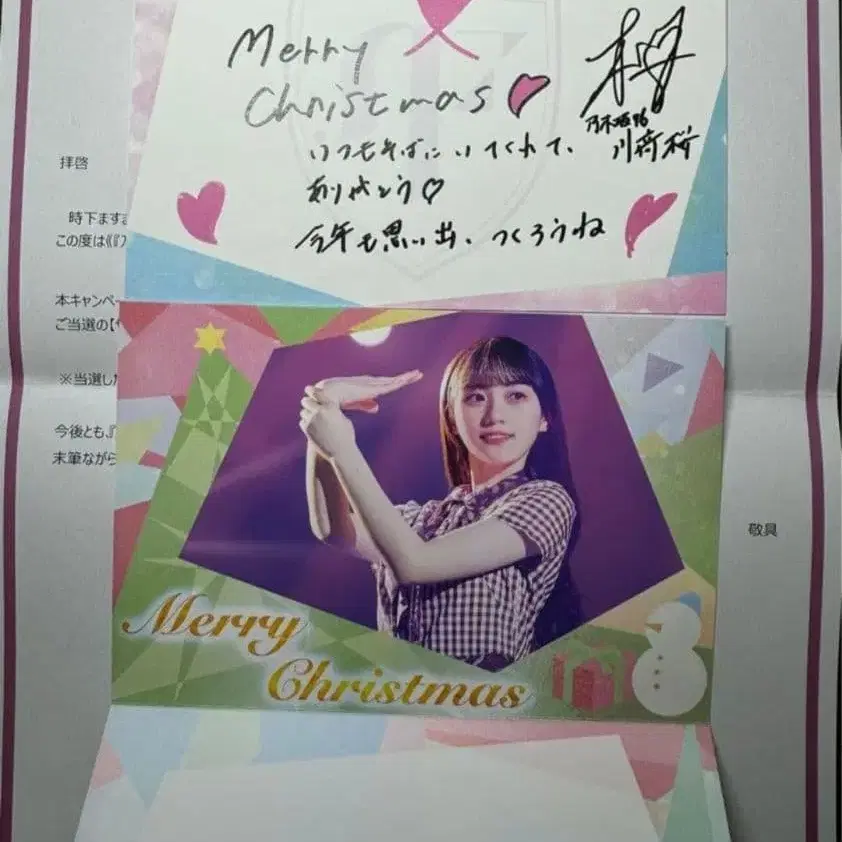 Merry
Christmas
いつもそばにいてくれて、
ありがとう♡
今年も思い出、つくろうね
乃木坂46
川﨑桜
拝啓
時下ますま
この度は
本キャンペー
ご当選の【
※当選した
今後とも、『
末筆ながら
敬具
Merry
Christmas